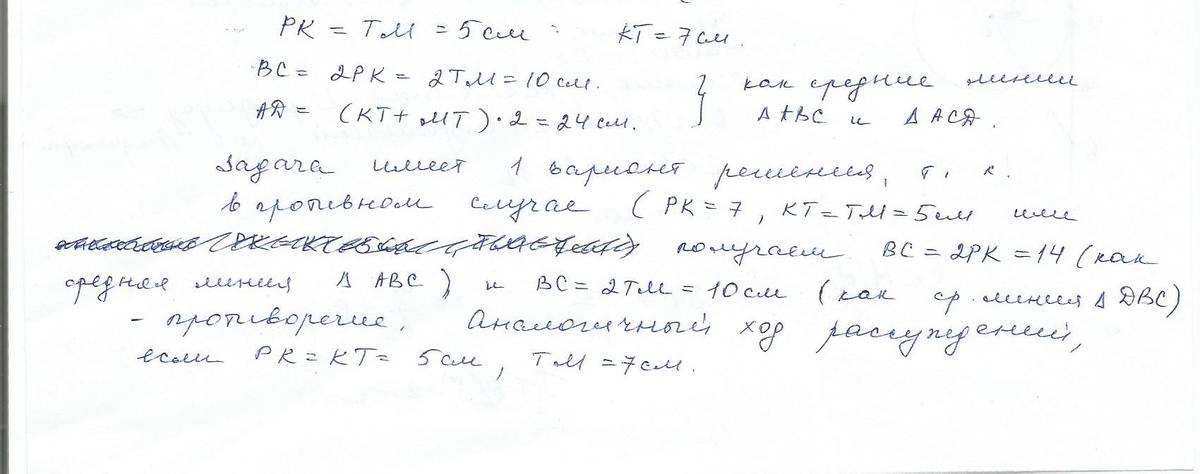 PK = TM = 5 см KT = 7 см.
BC = 2PK = 2TM = 10 см. } как средние линии
AD = (KT + MT) · 2 = 24 см. ΔABC и ΔACD.
Задача имеет 1 вариант решения, т. к.
в противном случае (PK = 7, KT = TM = 5 см или
получаем BC = 2PK = 14 (как
средняя линия Δ ABC) и BC = 2TM = 10 см (как ср. линия Δ DBC)
- противоречие. Аналогичный ход рассуждений,
если PK = KT = 5 см, TM = 7 см.